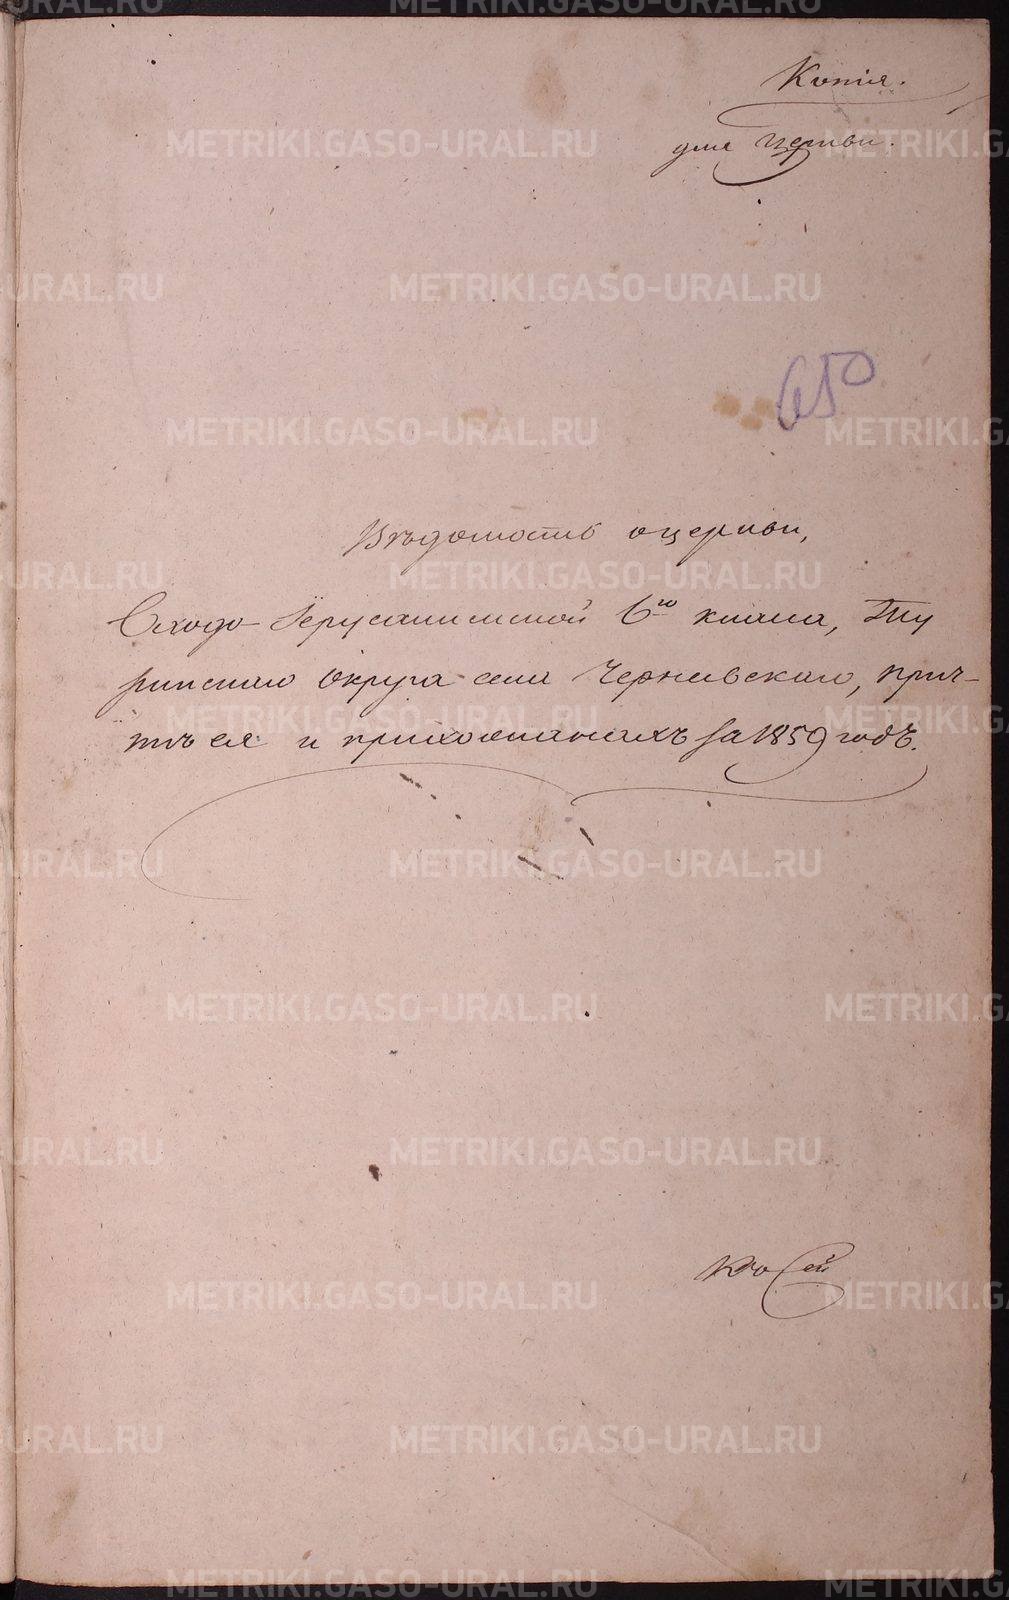 Копія.
для церкви.
650
Вѣдомость о церкви,
Входо-Іерусалимской 6го класса, Ту
ринскаго округа села Чернавскаго, прич-
тѣ ея и прихожанахъ за 1859 годъ.
METRIKI.GASO-URAL.RU